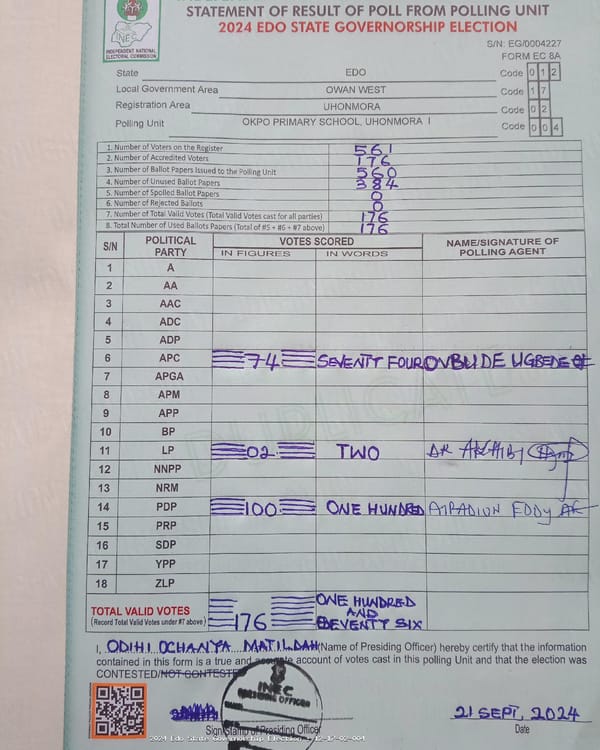 INEC
INDEPENDENT NATIONAL
ELECTORAL COMMISSION
STATEMENT OF RESULT OF POLL FROM POLLING UNIT
2024 EDO STATE GOVERNORSHIP ELECTION
S/N: EG/0004227
FORM EC 8A
State EDO Code 0 1 2
Local Government Area OWAN WEST Code 1 7
Registration Area UHONMORA Code 0 2
Polling Unit OKPO PRIMARY SCHOOL, UHONMORA I Code 0 0 4
1. Number of Voters on the Register 561
2. Number of Accredited Voters 176
3. Number of Ballot Papers Issued to the Polling Unit 560
4. Number of Unused Ballot Papers 384
5. Number of Spoiled Ballot Papers 0
6. Number of Rejected Ballots 0
7. Number of Total Valid Votes (Total Valid Votes cast for all parties) 176
8. Total Number of Used Ballots Papers (Total of #5 + #6 + #7 above) 176
S/N POLITICAL PARTY VOTES SCORED NAME/SIGNATURE OF POLLING AGENT
IN FIGURES IN WORDS
1 A
2 AA
3 AAC
4 ADC
5 ADP
6 APC 74 SEVENTY FOUR OVBUDE UGBEDE
7 APGA
8 APM
9 APP
10 BP
11 LP 02 TWO
12 NNPP
13 NRM
14 PDP 100 ONE HUNDRED EDDY
15 PRP
16 SDP
17 YPP
18 ZLP
TOTAL VALID VOTES
(Record Total Valid Votes under #7 above) 176 ONE HUNDRED AND SEVENTY SIX
I, ODIHI OCHANYA MATILDAH (Name of Presiding Officer) hereby certify that the information
contained in this form is a true and accurate account of votes cast in this polling Unit and that the election was
CONTESTED/NOT CONTESTED
INEC
PRESIDING OFFICER
21 SEPT, 2024
Sign/Stamp of Presiding Officer Date
DUPLICATE
2024 Edo State Governorship Election - 12-17-02-004